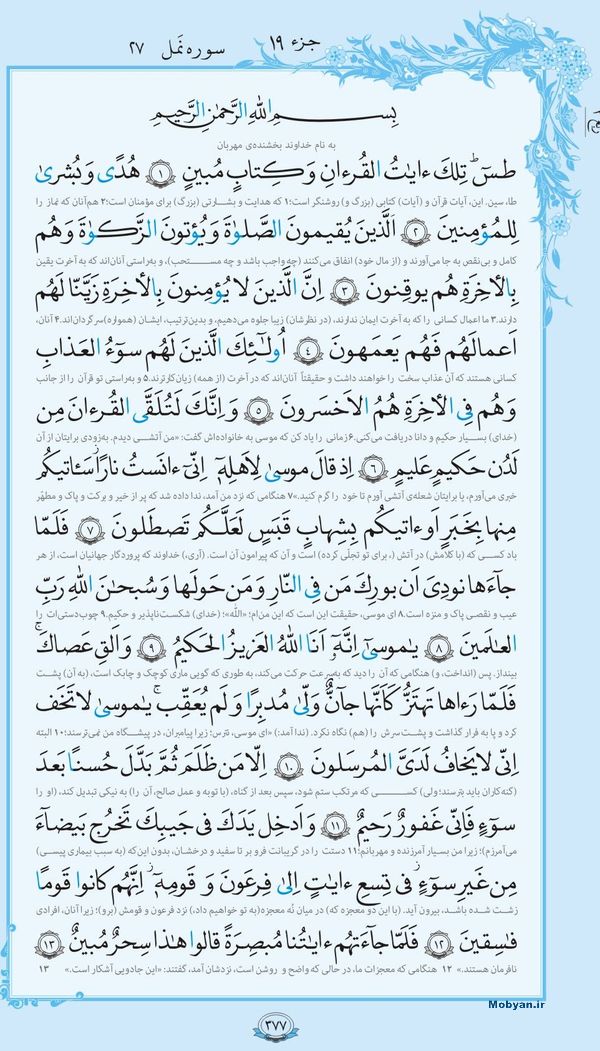 جزء ۱۹
سوره نَمل ۲۷
بِسمِ اللهِ الرَّحمٰنِ الرَّحیمِ
به نام خداوند بخشنده‌ی مهربان
طسٓ تِلكَ ءایاتُ القُرءانِ وَ كِتابٍ مُبینٍ ﴿۱﴾ هُدًی وَ بُشریٰ
طا، سین. این، آیات قرآن و (آیات) کتابی (بزرگ و) روشنگر است؛۱ که هدایت و بشارتی (بزرگ) برای مؤمنان است؛۲ هم‌آنان که نماز را
لِلمُؤمِنینَ ﴿۲﴾ اَلَّذینَ یُقیمونَ الصَّلوٰةَ وَ یُؤتونَ الزَّكوٰةَ وَ هُم
کامل و بی‌نقص به جا می‌آورند و (از مال خود) انفاق می‌کنند (چه واجب باشد و چه مستحب)، و به‌راستی آنان‌اند که به آخرت یقین
بِالأخِرَةِ هُم یوقِنونَ ﴿۳﴾ اِنَّ الَّذینَ لا یُؤمِنونَ بِالأخِرَةِ زَیَّنّا لَهُم
دارند.۳ ما اعمال کسانی را که به آخرت ایمان ندارند، (در نظرشان) زیبا جلوه می‌دهیم، و بدین‌ترتیب، ایشان (همواره) سرگردان‌اند.۴ آنان،
اَعمالَهُم فَهُم یَعمَهونَ ﴿۴﴾ اُولٰئِكَ الَّذینَ لَهُم سوٓءُ العَذابِ
کسانی هستند که آن عذاب سخت را خواهند داشت و حقیقتاً آنان‌اند که در آخرت (از همه) زیان‌کارترند.۵ و به‌راستی تو قرآن را از جانب
وَ هُم فِی الأخِرَةِ هُمُ الأخسَرونَ ﴿۵﴾ وَ اِنَّكَ لَتُلَقَّی القُرءانَ مِن
(خدای) بسیار حکیم و دانا دریافت می‌کنی.۶ زمانی را یاد کن که موسی به خانواده‌اش گفت: «من آتشی دیدم. به‌زودی برایتان از آن
لَدُن حَكیمٍ عَلیمٍ ﴿۶﴾ اِذ قالَ موسیٰ لِاَهلِهٓ اِنّیٓ ءانَستُ نارًا سَـٔاتیكُم
خبری می‌آورم، یا برایتان شعله‌ی آتشی آورم تا خود را گرم کنید.»۷ هنگامی که نزد من آمد، ندا داده شد که پر از خیر و برکت و پاک و مطهّر
مِنها بِخَبَرٍ اَو ءاتیكُم بِشِهابٍ قَبَسٍ لَعَلَّكُم تَصطَلونَ ﴿۷﴾ فَلَمّا
باد کسی که (با کلامش) در آتش (، برای تو تجلّی کرده) است و آن که پیرامون آن است. (آری،) خداوند که پروردگار جهانیان است، از هر
جآءَها نودِیَ اَن بورِكَ مَن فِی النّارِ وَ مَن حَولَها وَ سُبحٰنَ اللهِ رَبِّ
عیب و نقصی پاک و منزه است.۸ ای موسی، حقیقت این است که این من‌ام؛ «الله»؛ (خدای) شکست‌ناپذیر و حکیم.۹ چوب‌دستی‌ات را
العالَمینَ ﴿۸﴾ یٰموسیٰٓ اِنَّهٓ اَنَا اللهُ العَزیزُ الحَكیمُ ﴿۹﴾ وَ اَلقِ عَصاكَ ۚ
بینداز. پس (انداخت، و) هنگامی که آن را دید که به‌سرعت حرکت می‌کند، به طوری که گویی ماری کوچک و چابک است، (به آن) پشت
فَلَمّا رَءاها تَهتَزُّ كَاَنَّها جآنٌّ وَلّیٰ مُدبِرًا وَ لَم یُعَقِّب ۚ یٰموسیٰ لا تَخَف
کرد و پا به فرار گذاشت و پشت‌سرش را (هم) نگاه نکرد. (ندا آمد:) «ای موسی، نترس؛ زیرا پیامبران، در پیشگاه من نمی‌ترسند؛۱۰ البته
اِنّی لا یَخافُ لَدَیَّ المُرسَلونَ ﴿۱۰﴾ اِلّا مَن ظَلَمَ ثُمَّ بَدَّلَ حُسنًا بَعدَ
(گنه‌کاران باید بترسند؛ ولی) کسی که مرتکب ستم شود، سپس بعد از گناه، (با توبه و عمل صالح، آن را) به نیکی تبدیل کند، (او را
سوٓءٍ فَاِنّی غَفورٌ رَحیمٌ ﴿۱۱﴾ وَ اَدخِل یَدَكَ فی جَیبِكَ تَخرُج بَیضآءَ
می‌آمرزم)؛ زیرا من بسیار آمرزنده و مهربانم؛۱۱ دستت را در گریبانت فرو بر تا سفید و درخشان، بدون این‌که (به سبب بیماری پیسی)
مِن غَیرِ سوٓءٍ ۖ فی تِسعِ ءایاتٍ اِلیٰ فِرعَونَ وَ قَومِهٓ ۚ اِنَّهُم كانوا قَومًا
زشت شده باشد، بیرون آید. (با این دو معجزه که) در میان نُه معجزه (به تو خواهیم داد،) نزد فرعون و قومش (برو)؛ زیرا آنان، افرادی
فاسِقینَ ﴿۱۲﴾ فَلَمّا جآءَتهُم ءایاتُنا مُبصِرَةً قالوا هٰذا سِحرٌ مُبینٌ ﴿۱۳﴾
نافرمان هستند.» ۱۲ هنگامی که معجزات ما، در حالی که واضح و روشن است، نزدشان آمد، گفتند: «این جادویی آشکار است.» ۱۳
Mobyan.ir
۳۷۷